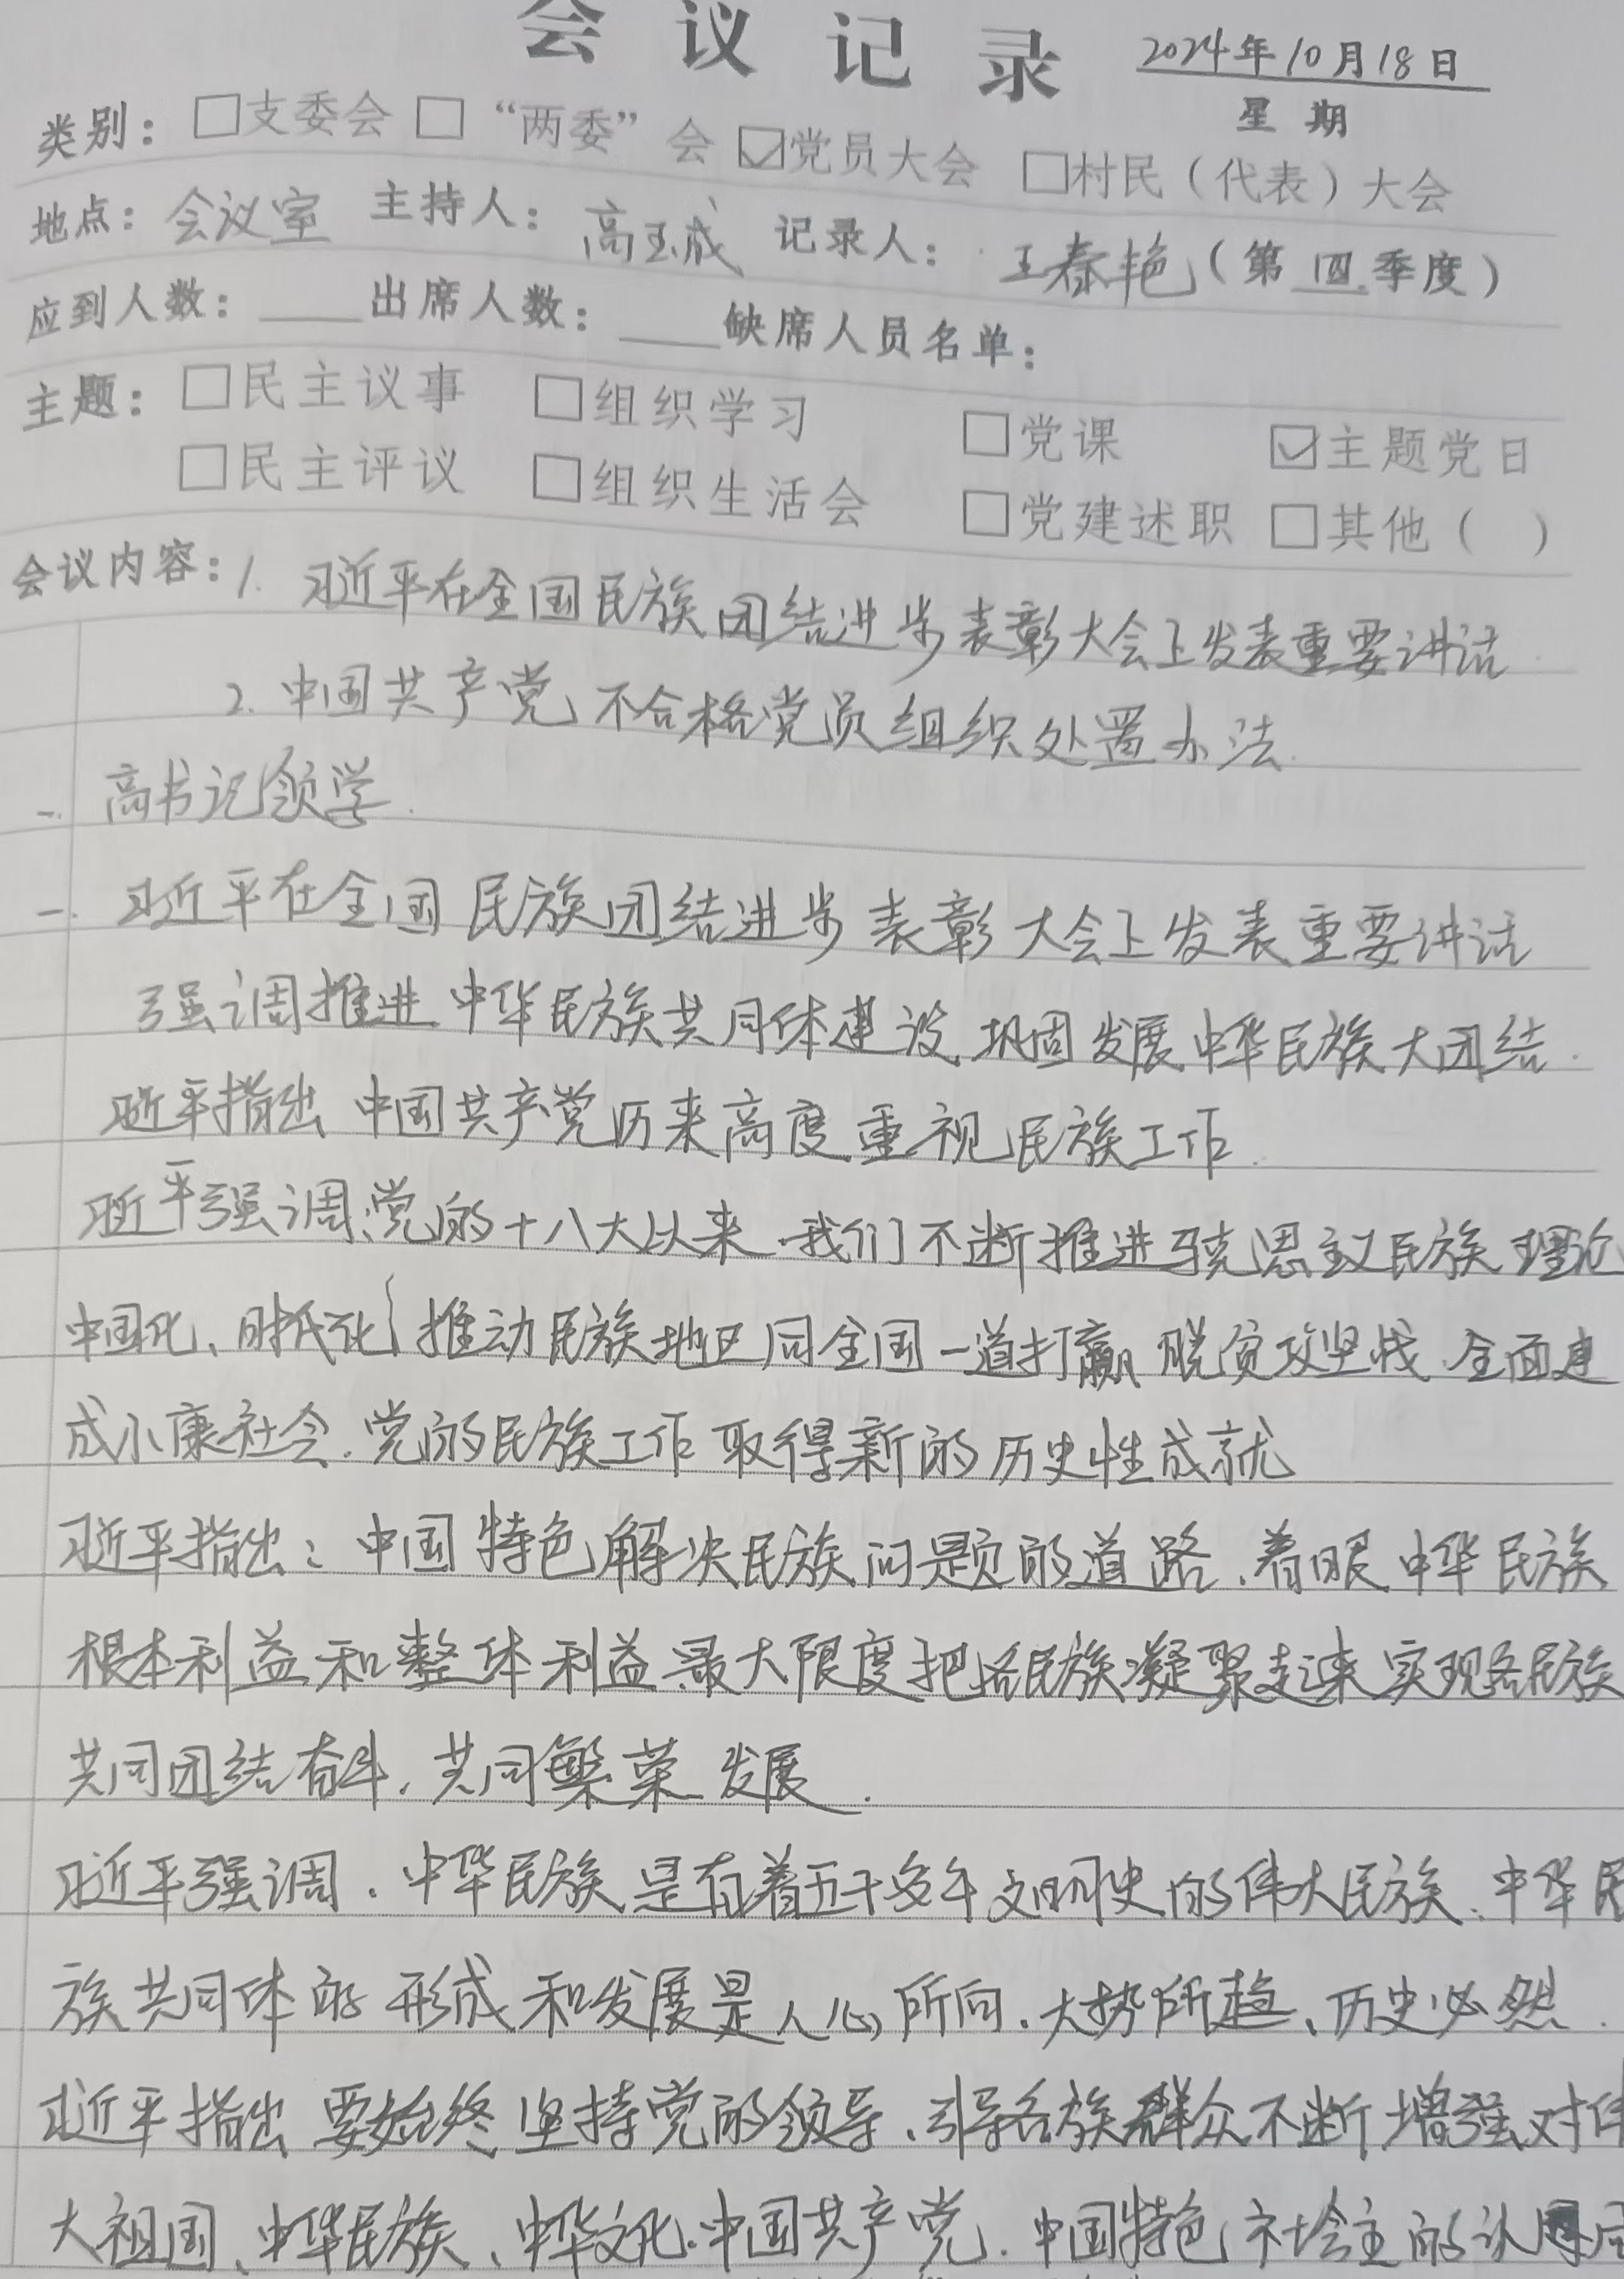 会议记录 2024年10月18日
星期
类别：□支委会 □“两委”会 ☑党员大会 □村民（代表）大会
地点：会议室 主持人：高玉成 记录人：王春艳（第四季度）
应到人数：____出席人数：____缺席人员名单：
主题：□民主议事 □组织学习 □党课 ☑主题党日
□民主评议 □组织生活会 □党建述职 □其他（ ）
会议内容：1. 习近平在全国民族团结进步表彰大会上发表重要讲话
2. 中国共产党不合格党员组织处置办法.
一. 高书记领学.
一. 习近平在全国民族团结进步表彰大会上发表重要讲话
强调推进中华民族共同体建设、巩固发展中华民族大团结.
习近平指出 中国共产党历来高度重视民族工作.
习近平强调：党的十八大以来.我们不断推进马克思主义民族理论
中国化、时代化 推动民族地区同全国一道打赢脱贫攻坚战、全面建
成小康社会.党的民族工作取得新的历史性成就
习近平指出：中国特色解决民族问题的道路、着眼中华民族
根本利益和整体利益.最大限度把各民族凝聚起来实现各民族
共同团结奋斗.共同繁荣发展.
习近平强调.中华民族是有着五千多年文明史的伟大民族、中华民
族共同体的形成和发展是人心所向.大势所趋、历史必然.
习近平指出 要始终坚持党的领导、引导各族群众不断增强对伟
大祖国、中华民族、中华文化.中国共产党.中国特色社会主的认同